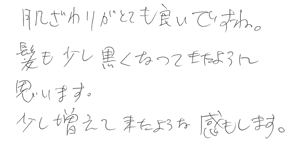 肌ざわりがとても良いですね。
髪も少し黒くなってきたように
思います。
少し増えて来たような感もします。